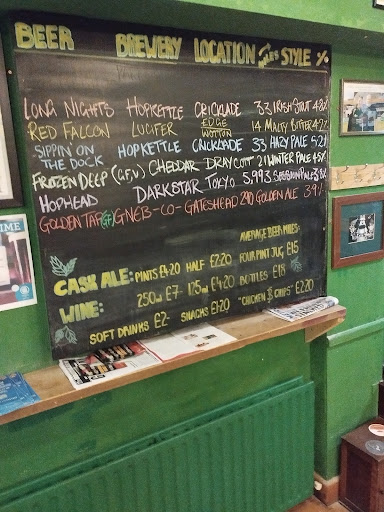 BEER BREWERY LOCATION MILES STYLE %
LONG NIGHTS HOPKETTLE CRICKLADE 33 IRISH STOUT 4.8%
RED FALCON LUCIFER EDGE WOTTON 14 MALTY BITTER 4.2%
SIPPIN' ON THE DOCK HOPKETTLE CRICKLADE 33 HAZY PALE 5.2%
FROZEN DEEP (G.F, V) CHEDDAR DRAYCOTT 21 WINTER PALE 4.5%
HOPHEAD DARKSTAR TOKYO 5,993 SESSION PALE 3.8%
GOLDEN TAF (GF) GNEB-CO- GATESHEAD 290 GOLDEN ALE 3.9%
AVERAGE BEER MILES:
CASK ALE: PINTS £4.20 HALF £2.20 FOUR PINT JUG £15
WINE: 250ml £7- 125ml £4.20 BOTTLES £18
SOFT DRINKS £2- SNACKS £1.20 "CHICKEN & CHIPS" £2.20
IME